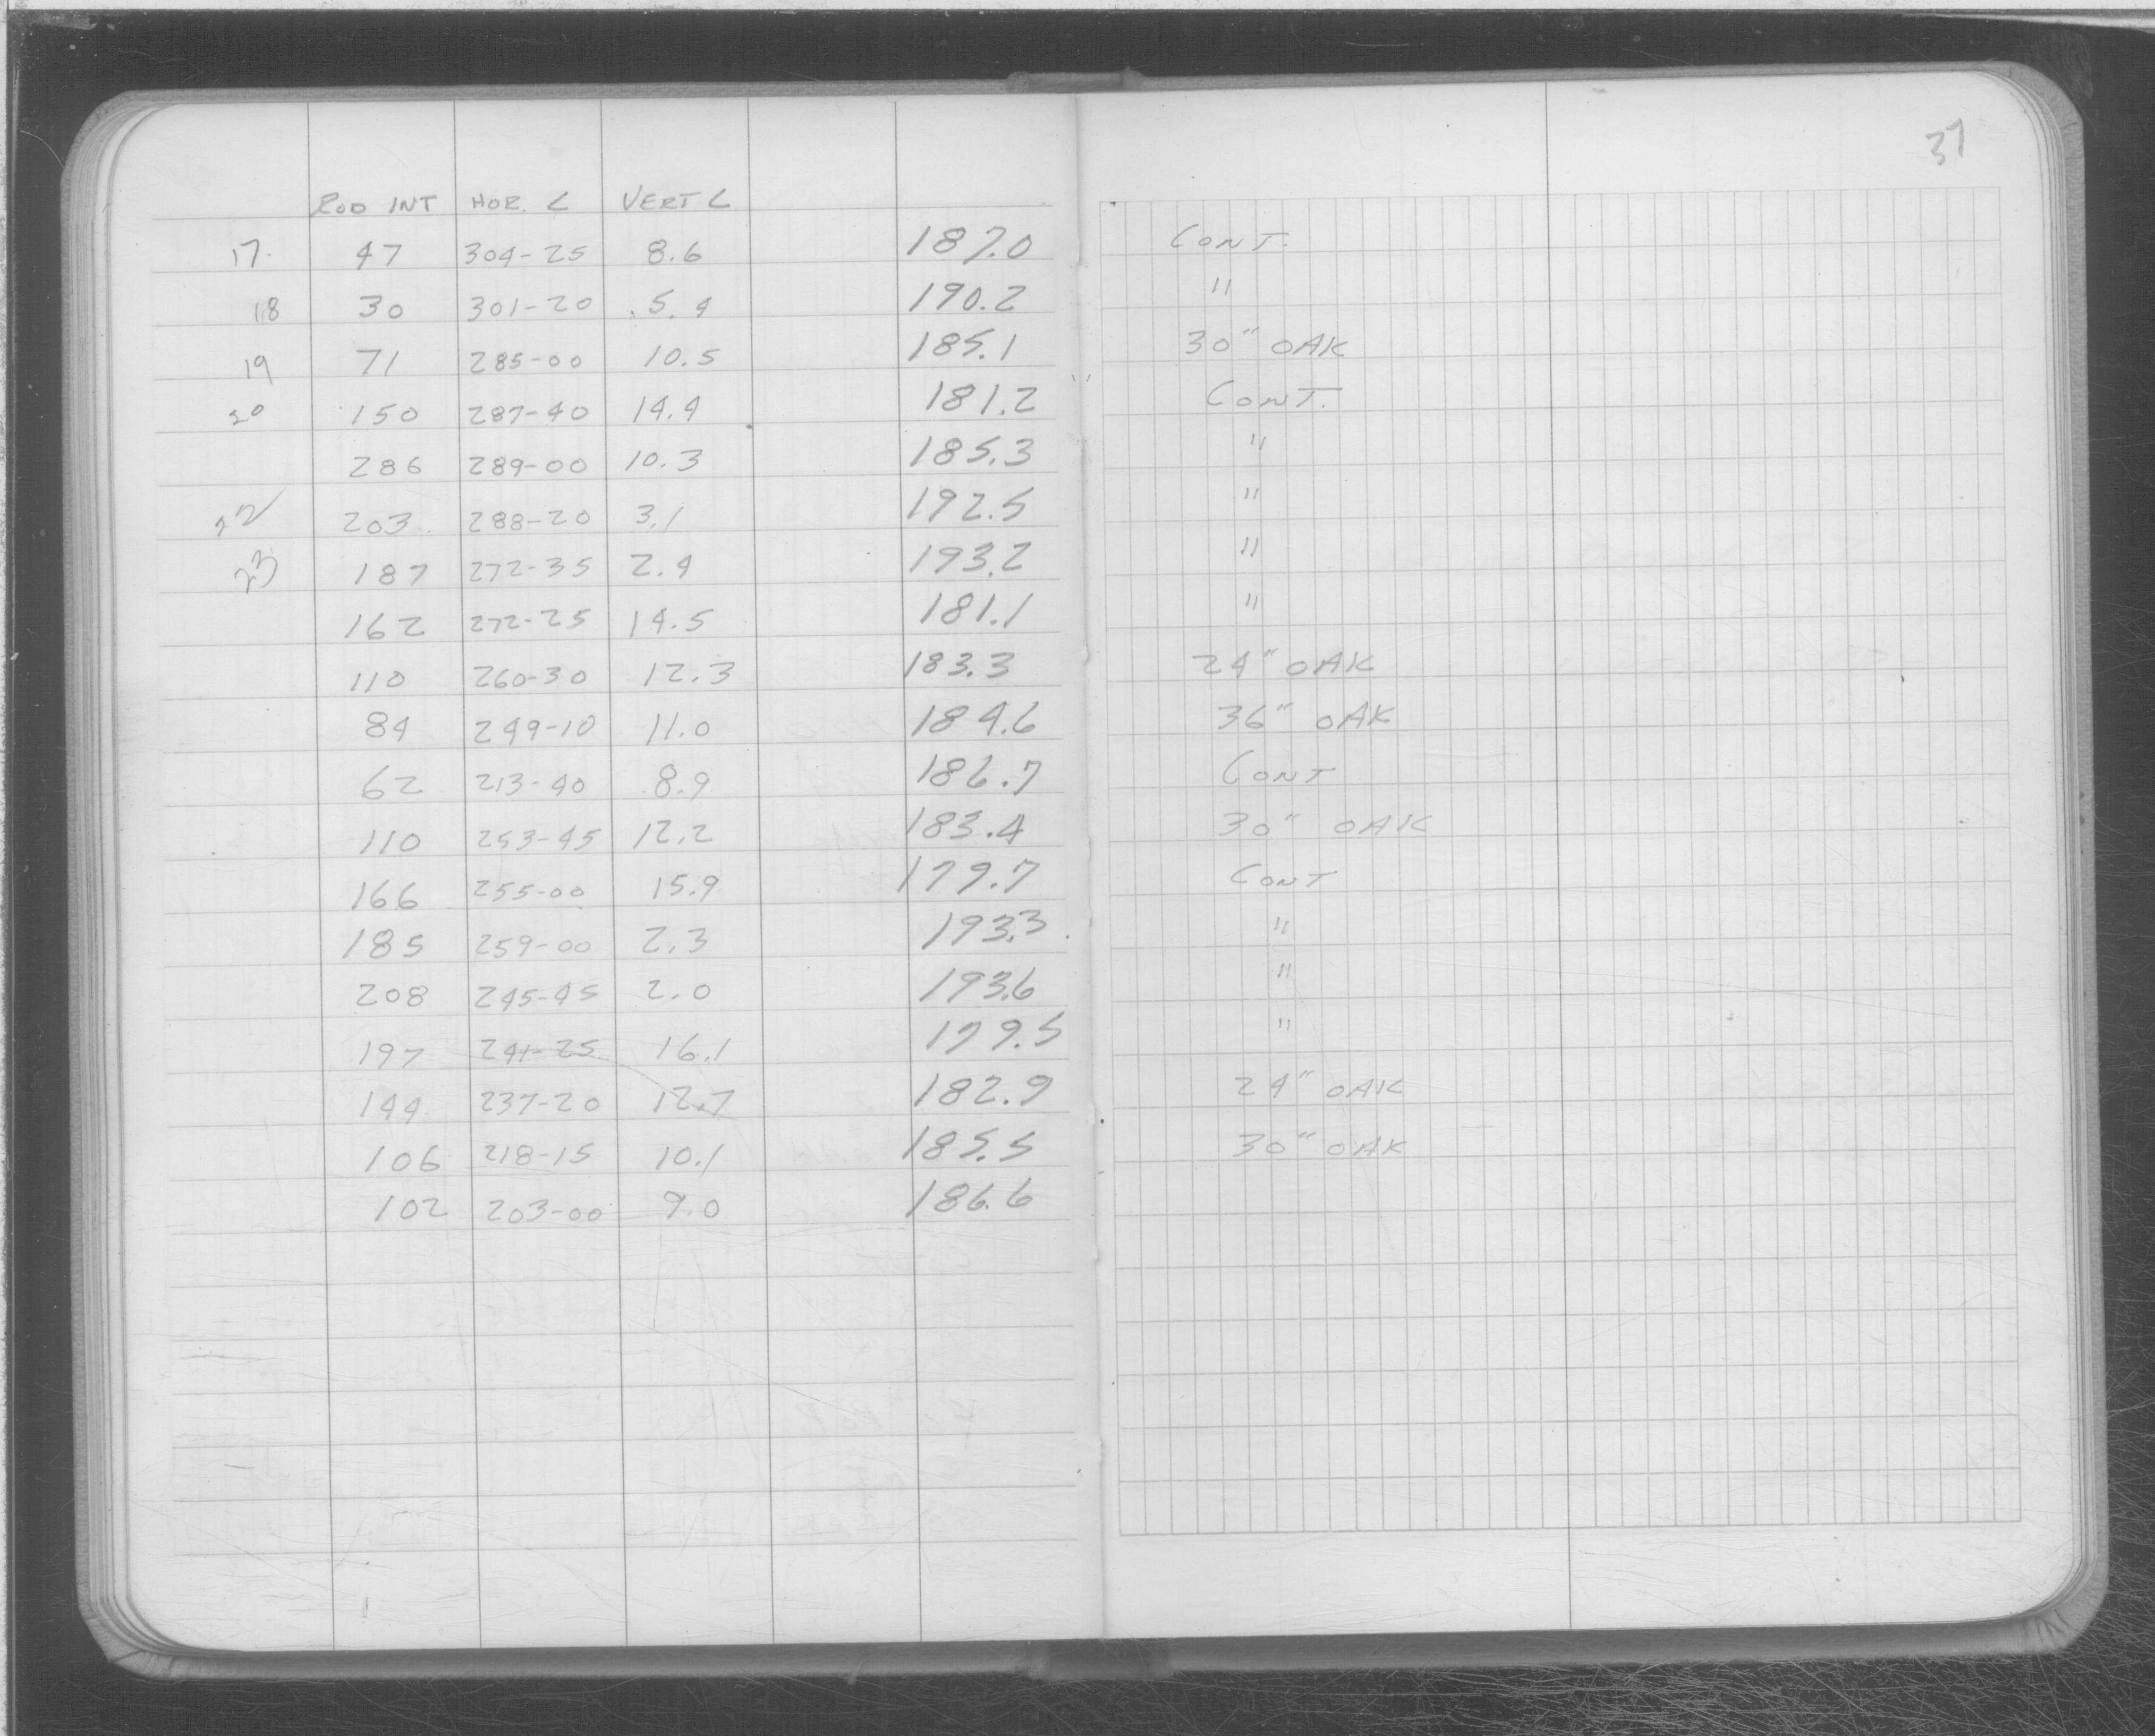 37
ROD INT HOR. ∠ VERT ∠
17. 47 304-25 8.6 187.0 CONT.
18 30 301-20 5.4 190.2 "
19 71 285-00 10.5 185.1 30" OAK
20 150 287-40 14.4 181.2 CONT.
286 289-00 10.3 185.3 "
22 203 288-20 3.1 192.5 "
23 187 272-35 2.4 193.2 "
162 272-25 14.5 181.1 "
110 260-30 12.3 183.3 24" OAK
84 249-10 11.0 184.6 36" OAK
62 213-40 8.9 186.7 CONT
110 253-45 12.2 183.4 30" OAK
166 255-00 15.9 179.7 CONT
185 259-00 2.3 193.3 "
208 245-45 2.0 193.6 "
197 241-25 16.1 179.5 "
144 237-20 12.7 182.9 24" OAK
106 218-15 10.1 185.5 30" OAK
102 203-00 9.0 186.6